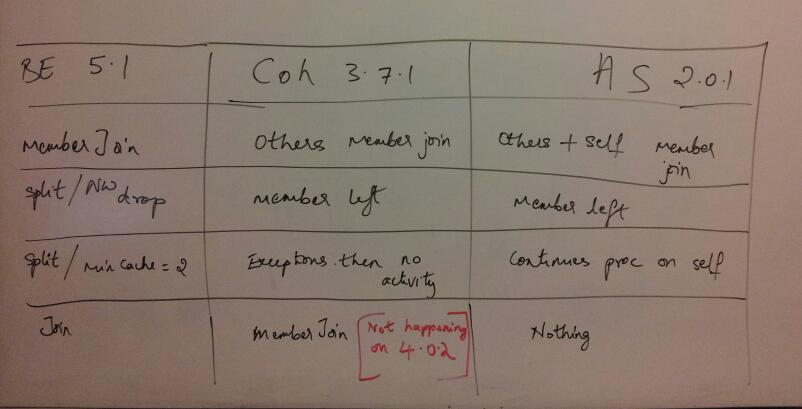 BE 5.1 Coh 3.7.1 AS 2.0.1
Member Join Others Member join Others + self member
join
Split/NW drop Member left Member left
Split/min cache = 2 Exceptions then no Continues proc on self
activity
Join Member Join [Not happening Nothing
on 4.0.2]